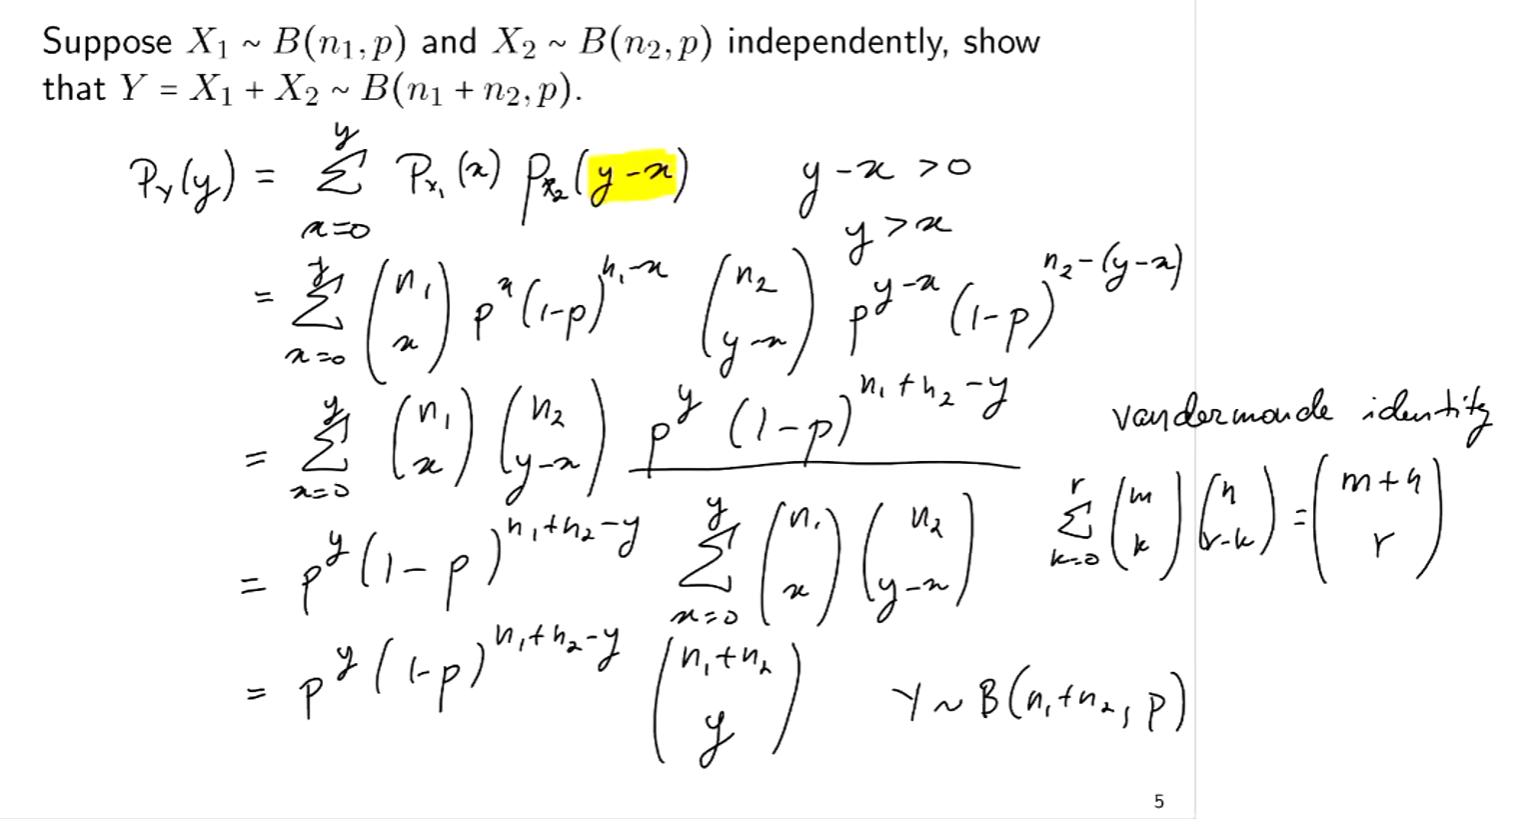 Suppose X₁ ~ B(n₁, p) and X₂ ~ B(n₂, p) independently, show
that Y = X₁ + X₂ ~ B(n₁ + n₂, p).
P_Y(y) = Σ_{x=0}^{y} P_{X₁}(x) P_{X₂}(y-x)    y-x >0
y > x
= Σ_{x=0}^{y} (n₁ \choose x) p^x (1-p)^{n₁-x} (n₂ \choose y-x) p^{y-x} (1-p)^{n₂-(y-x)}
= Σ_{x=0}^{y} (n₁ \choose x) (n₂ \choose y-x) p^y (1-p)^{n₁+n₂-y}
vandermonde identity
= p^y (1-p)^{n₁+n₂-y} Σ_{x=0}^{y} (n₁ \choose x) (n₂ \choose y-x)
Σ_{k=0}^{r} (m \choose k) (n \choose r-k) = (m+n \choose r)
= p^y (1-p)^{n₁+n₂-y} (n₁+n₂ \choose y)    Y ~ B(n₁+n₂, p)
5